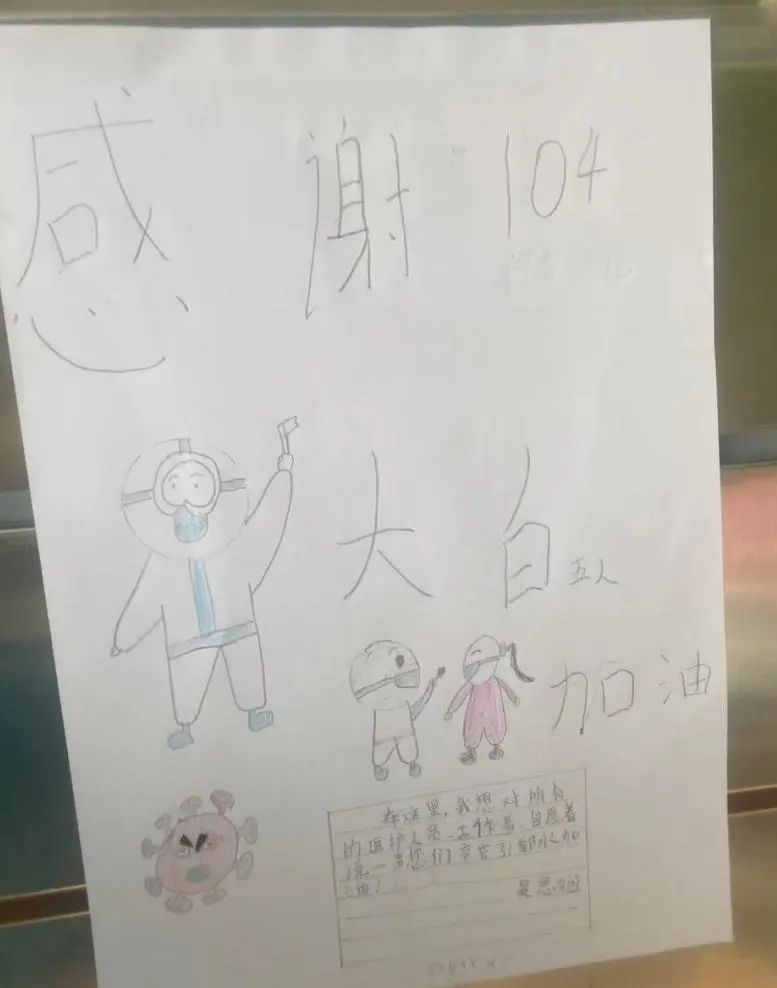 感谢104
大白五人
加油
在这里,我想对所有
的医护人员、工作者、自愿者
说一声您们辛苦了!邯永加
油!
吴思